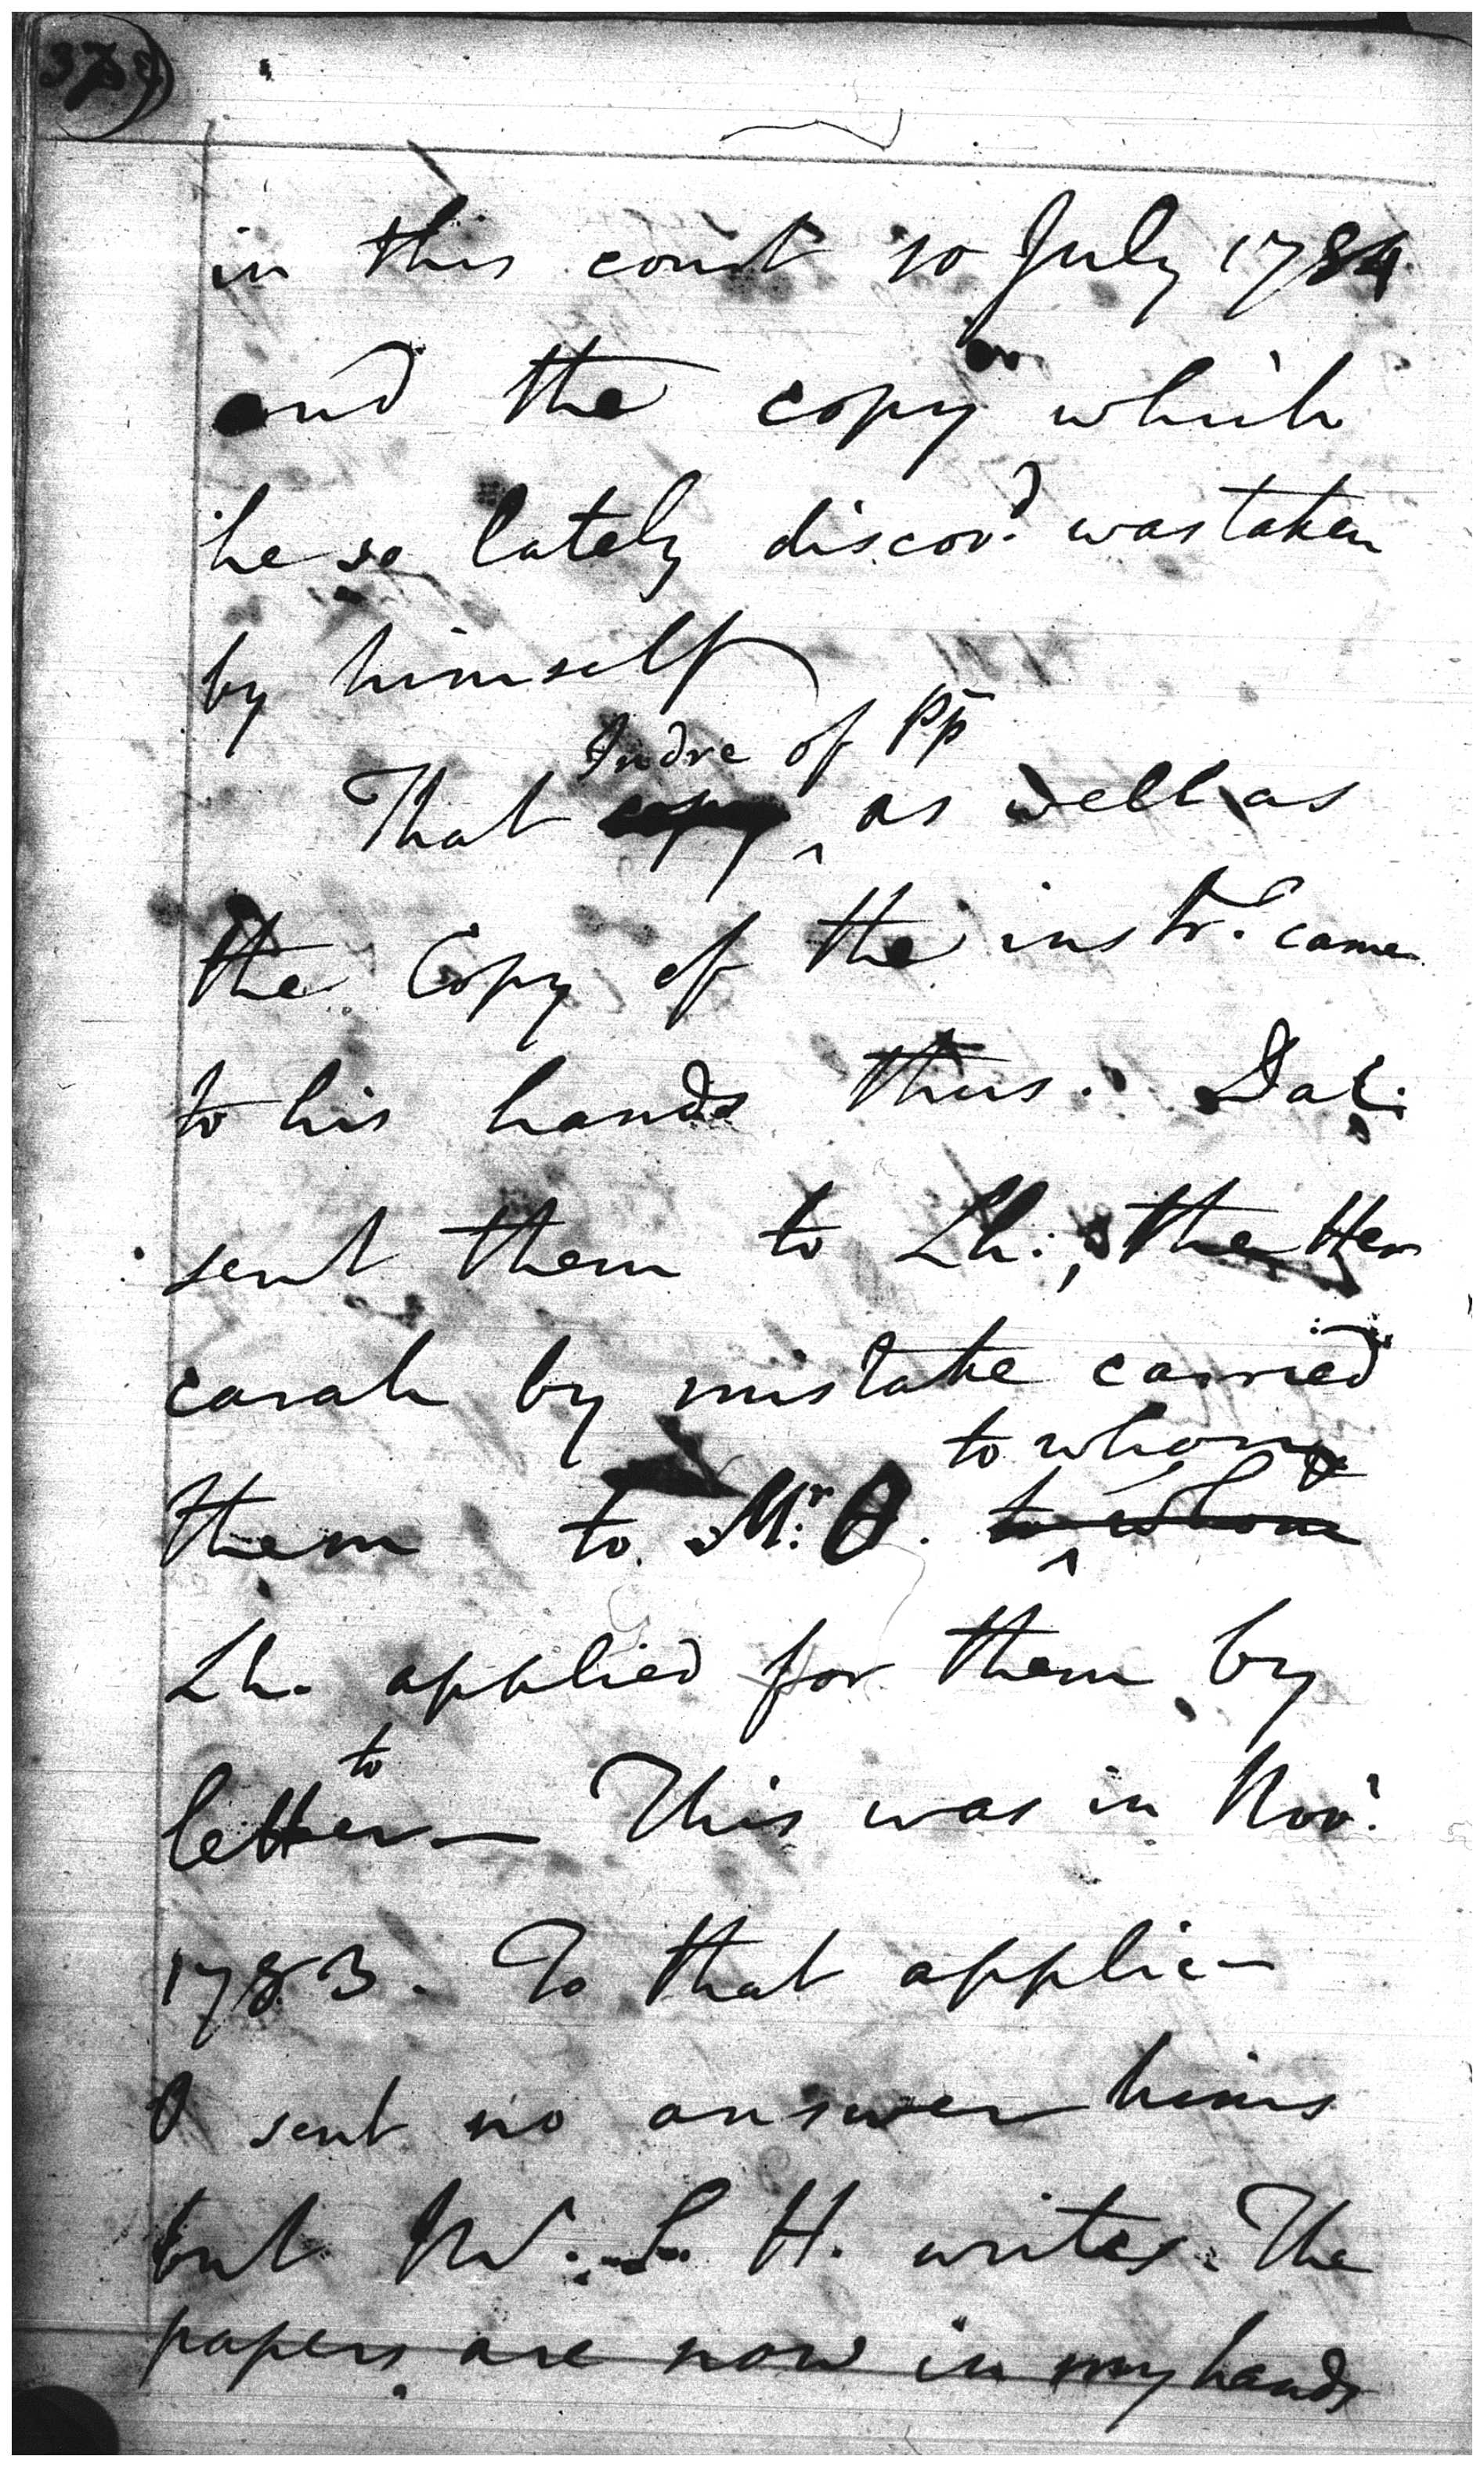 in this court 10 July 1784
and the copy which
he so lately discov.d was taken
by himself
Indre of pp
That copy ^ as well as
the Copy of the instr. came
to his hands thus. Dal:
sent them to Lh:, the Her
carah by mistake carried
to whom
them to Mr. O. to whom
Lh. applied for them by
to
letter — This was in Novr.
1783. To that applic—
O sent no answer hims
but W. L. H. writes. The
papers are now in my hands